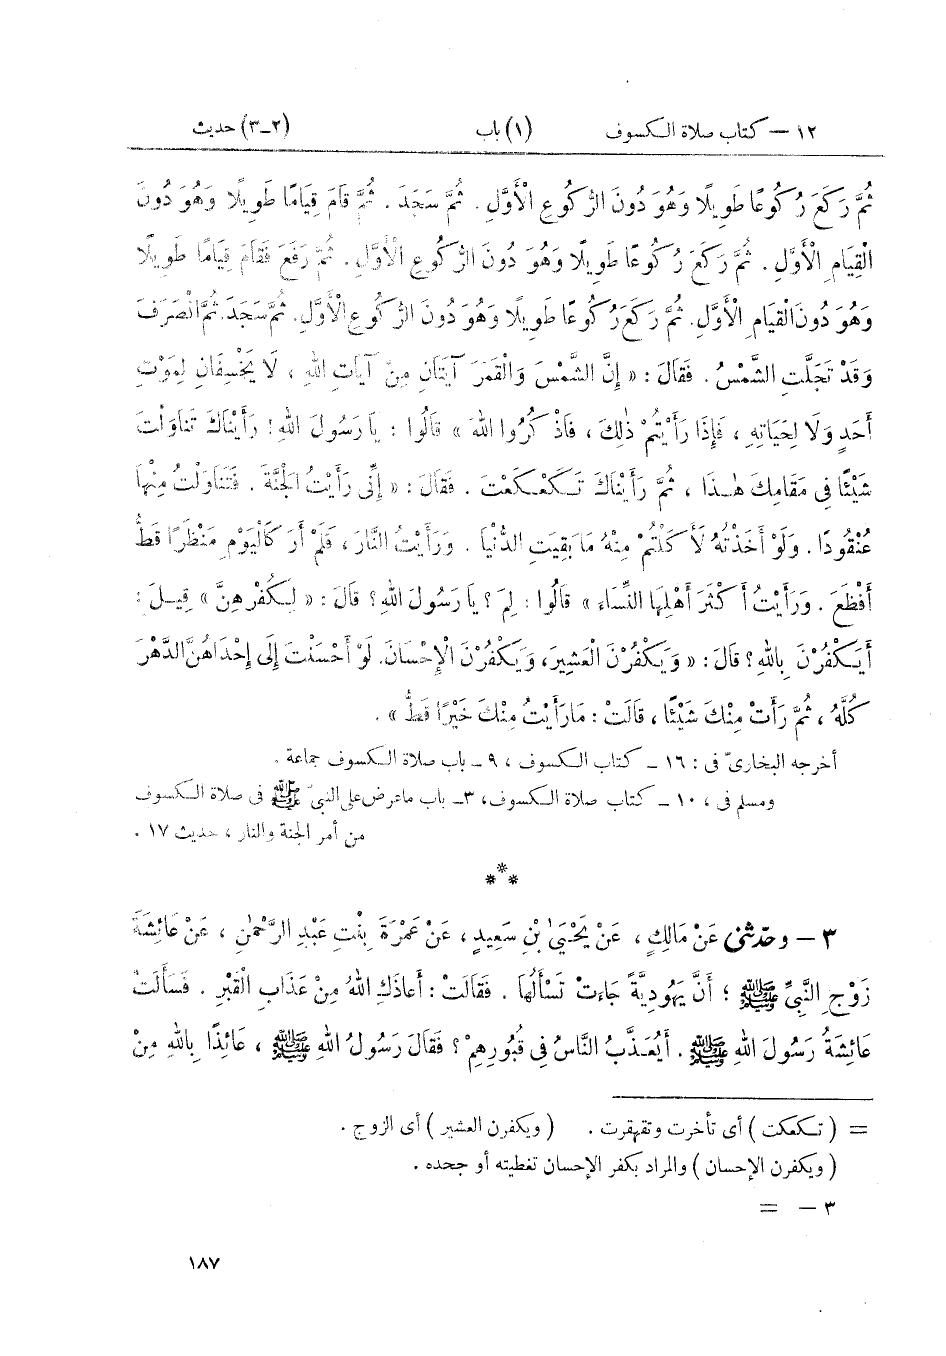 ١٢ — كتاب صلاة الكسوف (١) باب (٢-٣) حديث
ثُمَّ رَكَعَ رُكُوعًا طَوِيلًا وَهُوَ دُونَ الرُّكُوعِ الْأَوَّلِ . ثُمَّ سَجَدَ . ثُمَّ قَامَ قِيَامًا طَوِيلًا وَهُوَ دُونَ
الْقِيَامِ الْأَوَّلِ . ثُمَّ رَكَعَ رُكُوعًا طَوِيلًا وَهُوَ دُونَ الرُّكُوعِ الْأَوَّلِ . ثُمَّ رَفَعَ فَقَامَ قِيَامًا طَوِيلًا
وَهُوَ دُونَ الْقِيَامِ الْأَوَّلِ. ثُمَّ رَكَعَ رُكُوعًا طَوِيلًا وَهُوَ دُونَ الرُّكُوعِ الْأَوَّلِ. ثُمَّ سَجَدَ. ثُمَّ انْصَرَفَ
وَقَدْ تَجَلَّتِ الشَّمْسُ . فَقَالَ : « إِنَّ الشَّمْسَ وَالْقَمَرَ آيَتَانِ مِنْ آيَاتِ اللهِ ، لَا يَخْسِفَانِ لِمَوْتِ
أَحَدٍ وَلَا لِحَيَاتِهِ ، فَإِذَا رَأَيْتُمْ ذٰلِكَ ، فَاذْكُرُوا اللهَ » قَالُوا : يَا رَسُولَ اللهِ! رَأَيْنَاكَ تَنَاوَلْتَ
شَيْئًا فِي مَقَامِكَ هٰذَا ، ثُمَّ رَأَيْنَاكَ تَكَعْكَعْتَ . فَقَالَ : « إِنِّي رَأَيْتُ الْجَنَّةَ . فَتَنَاوَلْتُ مِنْهَا
عُنْقُودًا . وَلَوْ أَخَذْتُهُ لَأَكَلْتُمْ مِنْهُ مَا بَقِيَتِ الدُّنْيَا . وَرَأَيْتُ النَّارَ ، فَلَمْ أَرَ كَالْيَوْمِ مَنْظَرًا قَطُّ
أَفْظَعَ . وَرَأَيْتُ أَكْثَرَ أَهْلِهَا النِّسَاءَ » قَالُوا : لِمَ ؟ يَا رَسُولَ اللهِ؟ قَالَ : « لِكُفْرِهِنَّ » قِيلَ :
أَيَكْفُرْنَ بِاللهِ ؟ قَالَ : « وَيَكْفُرْنَ الْعَشِيرَ، وَيَكْفُرْنَ الْإِحْسَانَ. لَوْ أَحْسَنْتَ إِلَى إِحْدَاهُنَّ الدَّهْرَ
كُلَّهُ ، ثُمَّ رَأَتْ مِنْكَ شَيْئًا ، قَالَتْ : مَا رَأَيْتُ مِنْكَ خَيْرًا قَطُّ » .
أخرجه البخاريّ فى : ١٦ — كتاب الكسوف ، ٩ — باب صلاة الكسوف جماعة .
ومسلم فى ، ١٠ — كتاب صلاة الكسوف، ٣— باب ما عرض على النبيّ ﷺ فى صلاة الكسوف
من أمر الجنة والنار ، حديث ١٧ .
***
٣ — وحدّثنى عَنْ مَالِكٍ ، عَنْ يَحْيَىٰ بْنِ سَعِيدٍ ، عَنْ عَمْرَةَ بِنْتِ عَبْدِ الرَّحْمٰنِ ، عَنْ عَائِشَةَ
زَوْجِ النَّبِيِّ ﷺ ؛ أَنَّ يَهُودِيَّةً جَاءَتْ تَسْأَلُهَا . فَقَالَتْ : أَعَاذَكِ اللهُ مِنْ عَذَابِ الْقَبْرِ . فَسَأَلَتْ
عَائِشَةُ رَسُولَ اللهِ ﷺ . أَيُعَذَّبُ النَّاسُ فِي قُبُورِهِمْ ؟ فَقَالَ رَسُولُ اللهِ ﷺ ، عَائِذًا بِاللهِ مِنْ
= ( تكعكعت ) أى تأخرت وتقهقرت . ( ويكفرن العشير ) أى الزوج .
( ويكفرن الإحسان ) والمراد بكفر الإحسان تغطيته أو جحده .
٣ — =
١٨٧